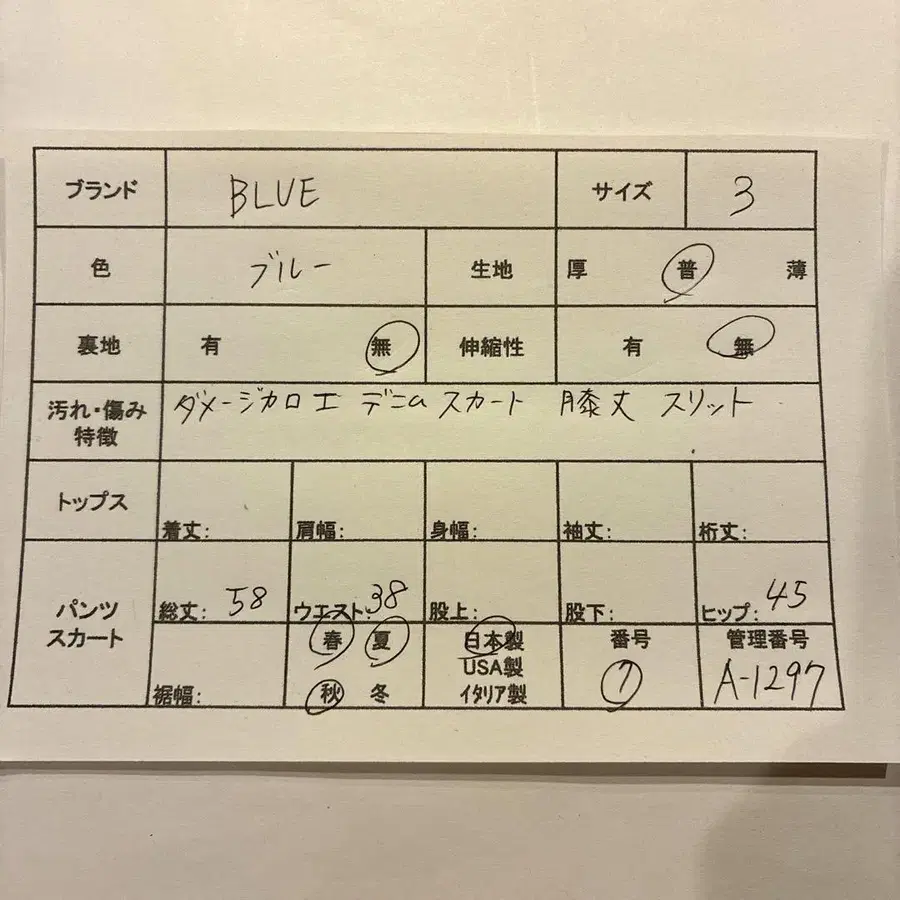 ブランド BLUE サイズ 3
色 ブルー 生地 厚 普 薄
裏地 有 無 伸縮性 有 無
汚れ・傷み
特徴
ダメージカロエ デニム スカート 膝丈 スリット
トップス
着丈: 肩幅: 身幅: 袖丈: 裄丈:
パンツ
スカート
総丈: 58 ウエスト: 38 股上: 股下: ヒップ: 45
裾幅:
春 夏
秋 冬
日本製
USA製
イタリア製
番号
7
管理番号
A-1297